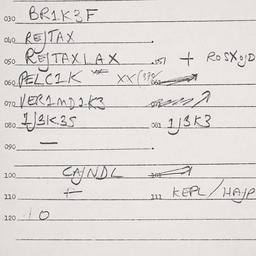 030 BR1K3F
040 REJTAX
050 REJTAXLAX 051 + ROSXOJD
060 PELC1K XX
070 VER1MD2K3
080 1J3K3S 081 1J3K3
090 —
100 CAJNDL
110 + 111 KEPL/HAJP
120 10